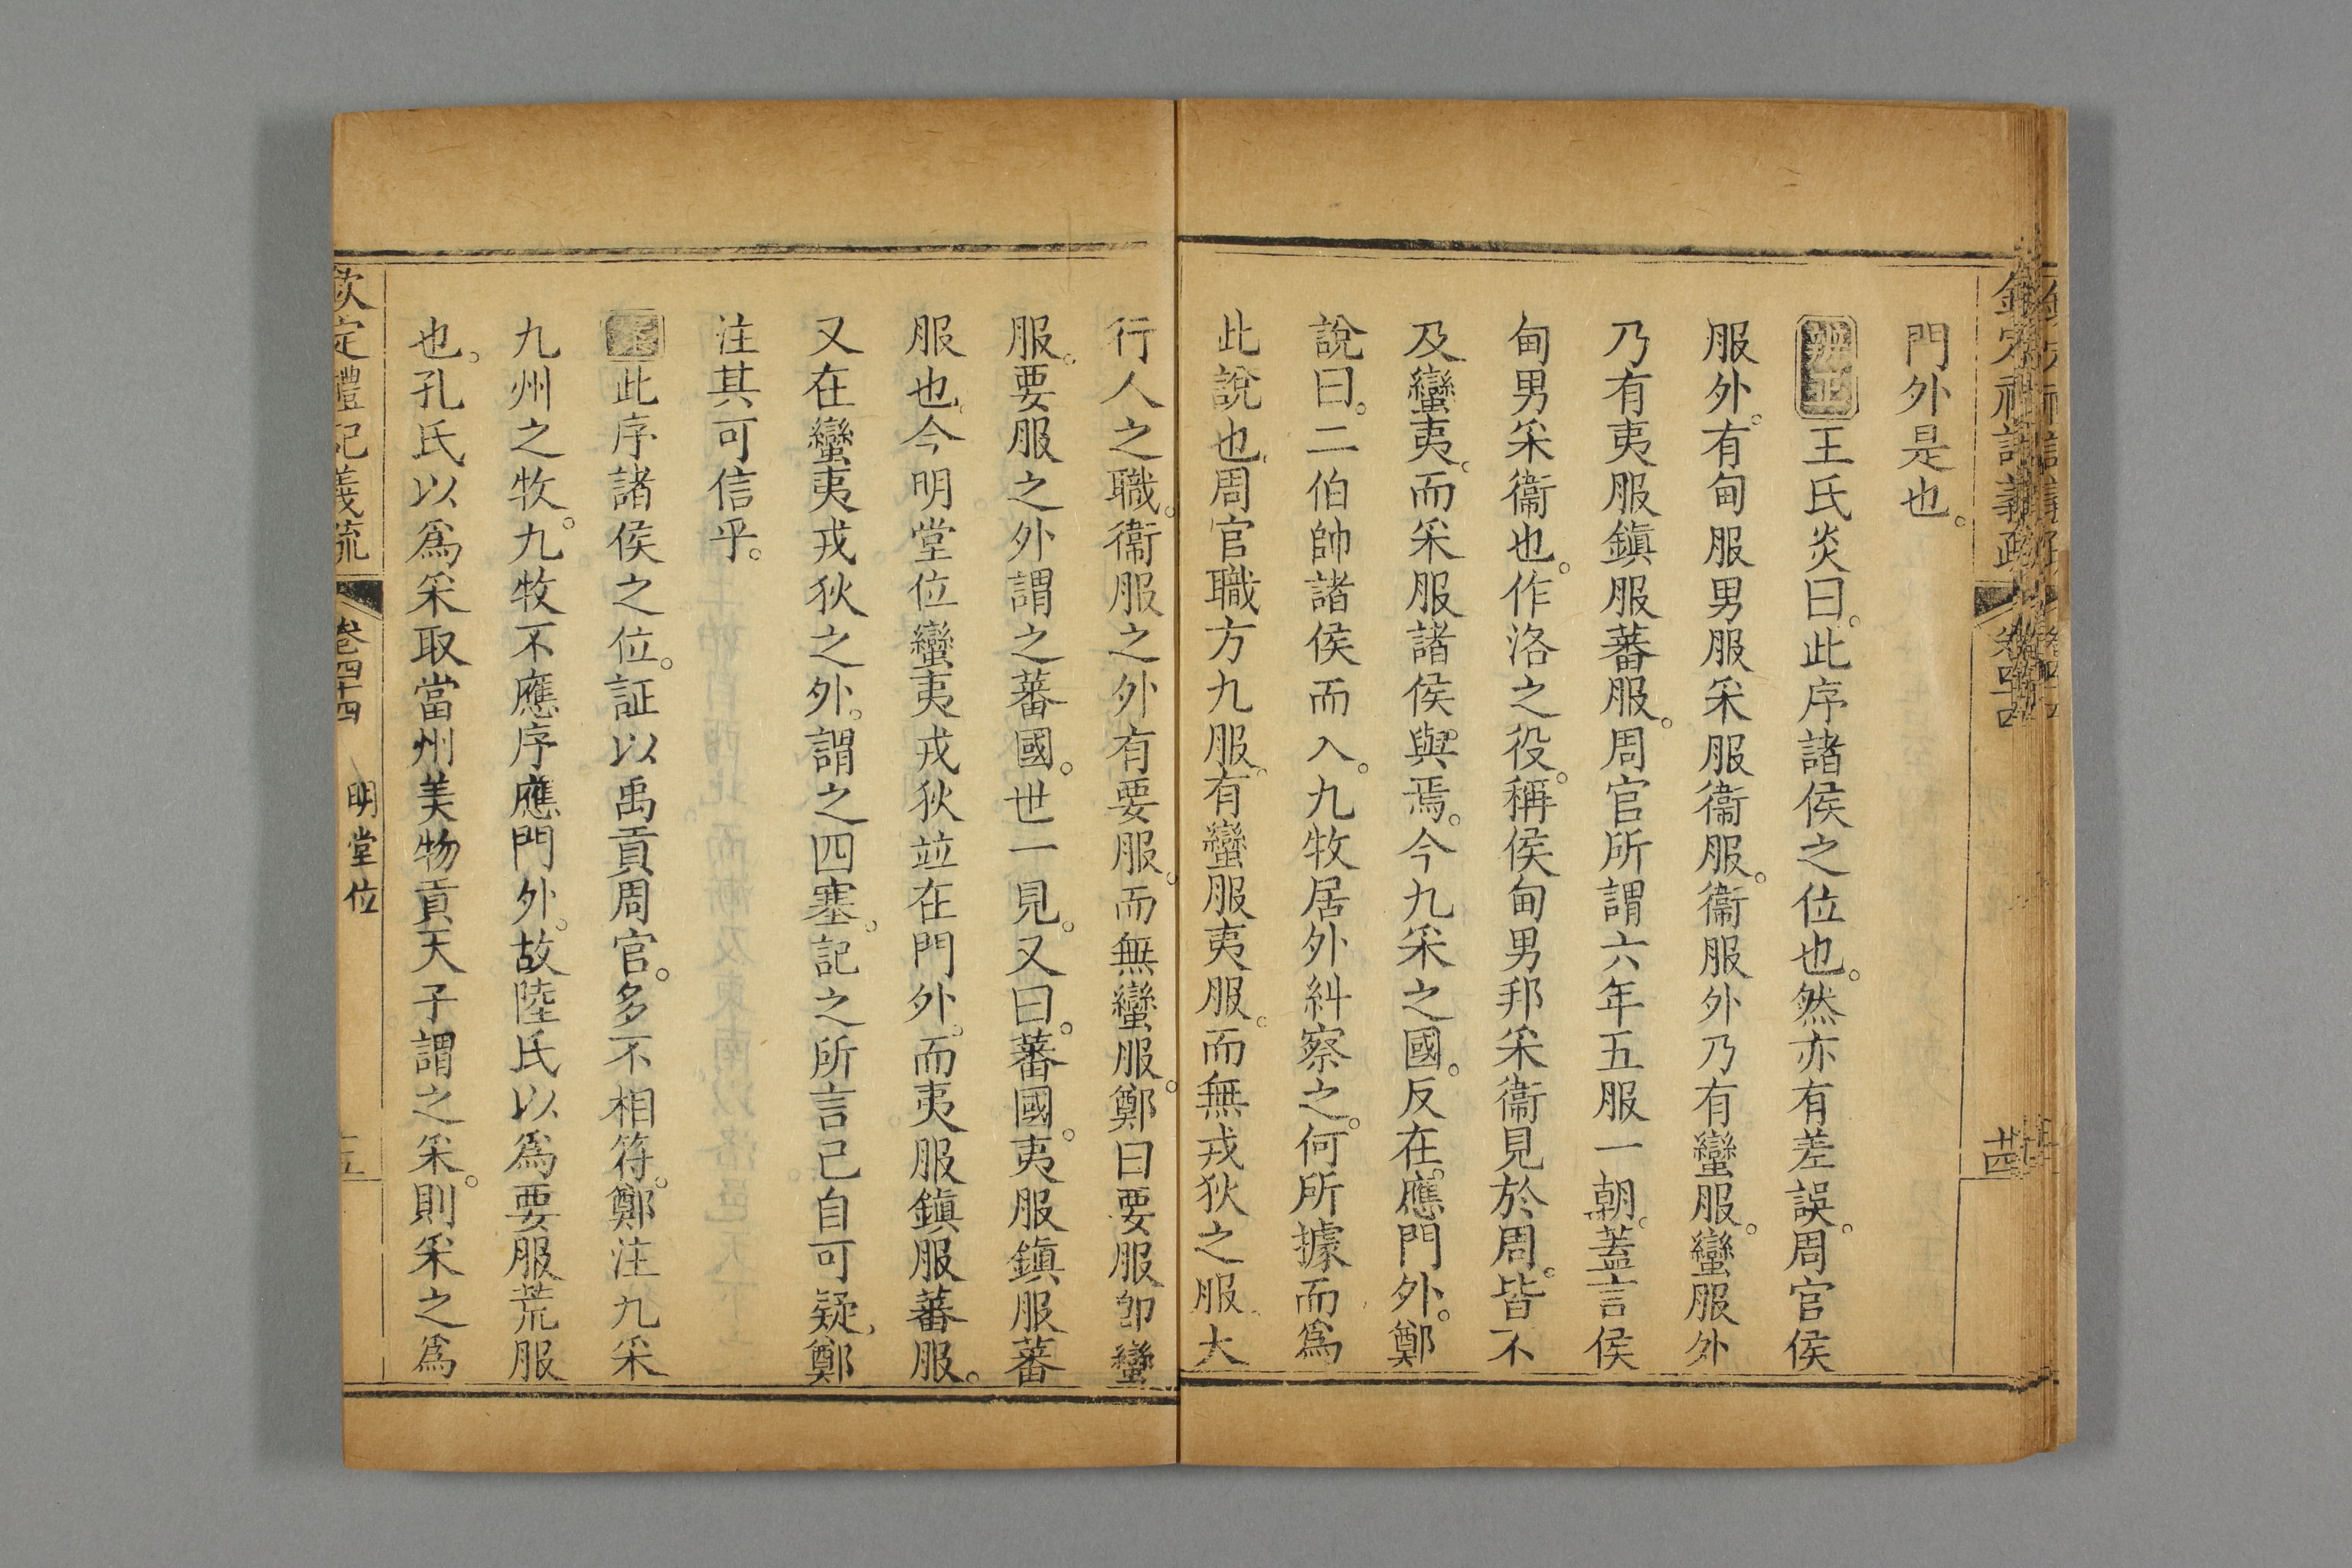 門外是也。
辨正王氏炎曰。此序諸侯之位也。然亦有差誤。周官侯
服外。有甸服男服采服衞服。衞服外乃有蠻服。蠻服外
乃有夷服鎭服蕃服。周官所謂六年五服一朝。蓋言侯
甸男采衞也。作洛之役。稱侯甸男邦采衞見於周。皆不
及蠻夷。而采服諸侯與焉。今九采之國。反在應門外。鄭
說曰。二伯帥諸侯而入。九牧居外糾察之。何所據而爲
此說也。周官職方九服。有蠻服夷服。而無戎狄之服。大
行人之職。衞服之外有要服。而無蠻服。鄭曰要服卽蠻
服。要服之外謂之蕃國。世一見。又曰。蕃國。夷服鎭服蕃
服也。今明堂位蠻夷戎狄竝在門外。而夷服鎭服蕃服。
又在蠻夷戎狄之外。謂之四塞。記之所言已自可疑。鄭
注其可信乎。
此序諸侯之位。証以禹貢周官。多不相符。鄭注九采
九州之牧。九牧不應序應門外。故陸氏以爲要服荒服
也。孔氏以爲采取當州美物貢天子謂之采。則采之爲
欽定禮記義疏 卷四十四 明堂位